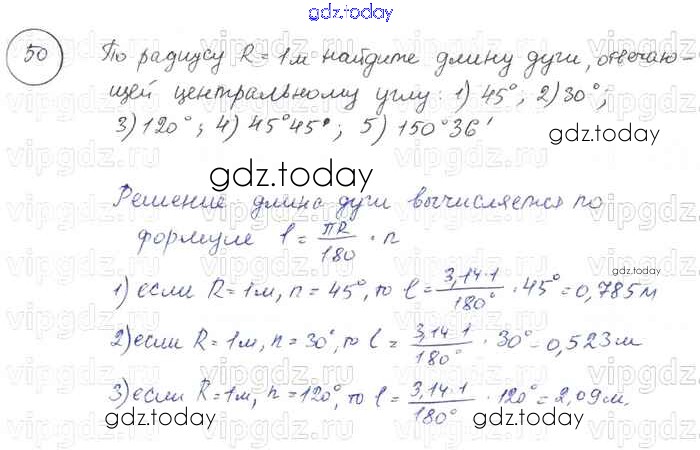 gdz.today
50 По радиусу R = 1м найдите длину дуги, отвечаю-
щей центральному углу: 1) 45°; 2) 30°;
3) 120°; 4) 45°45'; 5) 150°36'
gdz.today
gdz.today
Решение длина дуги вычисляется по
формуле l = πR/180 · n
gdz.today
1) если R = 1м, n = 45°, то l = 3,14·1/180° · 45° = 0,785м
2) если R = 1м, n = 30°, то l = 3,14·1/180° · 30° = 0,523м
3) если R = 1м, n = 120°, то l = 3,14·1/180° · 120° = 2,09м.
gdz.today
gdz.today